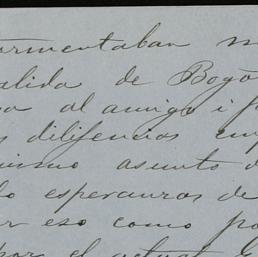 ormentaban m
alida de Bogo
a al amigo i p
s dilijencias em
mismo asunto d
do esperanzas de
r eso como po
por el actual